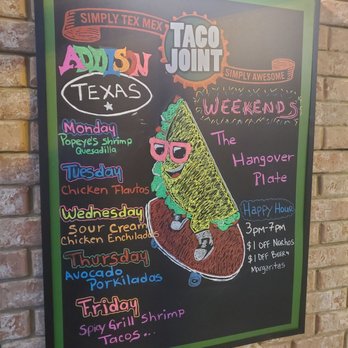 SIMPLY TEX MEX
TACO
JOINT
SIMPLY AWESOME
ADDISON
TEXAS
Monday
Popeye's Shrimp
Quesadilla
Tuesday
Chicken Flautas
Wednesday
Sour Cream
Chicken Enchiladas
Thursday
Avocado
Porkiladas
Friday
Spicy Grill Shrimp
Tacos...
WEEKENDS
The
Hangover
Plate
Happy Hour
3pm-7pm
$1 OFF Nachos
$1 OFF Beer &
Margaritas